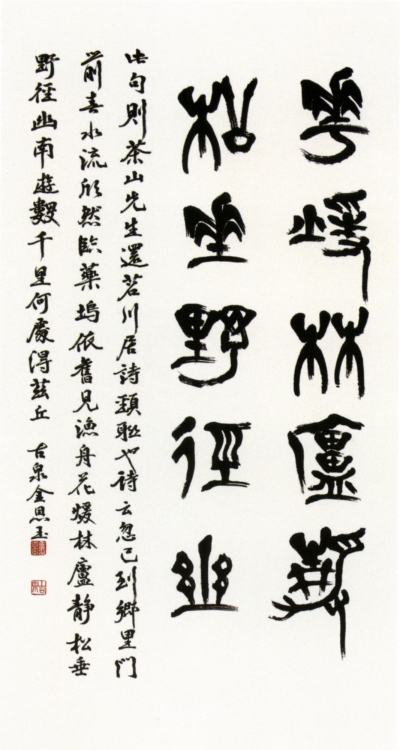 花煖林廬靜
松垂野徑幽
此句則茶山先生還苕川居詩頸聯也詩云忽已到鄉里門
前春水流欣然臨藥塢依舊見漁舟花煖林廬靜松垂
野徑幽南遊數千里何處得玆丘 古泉金恩玉